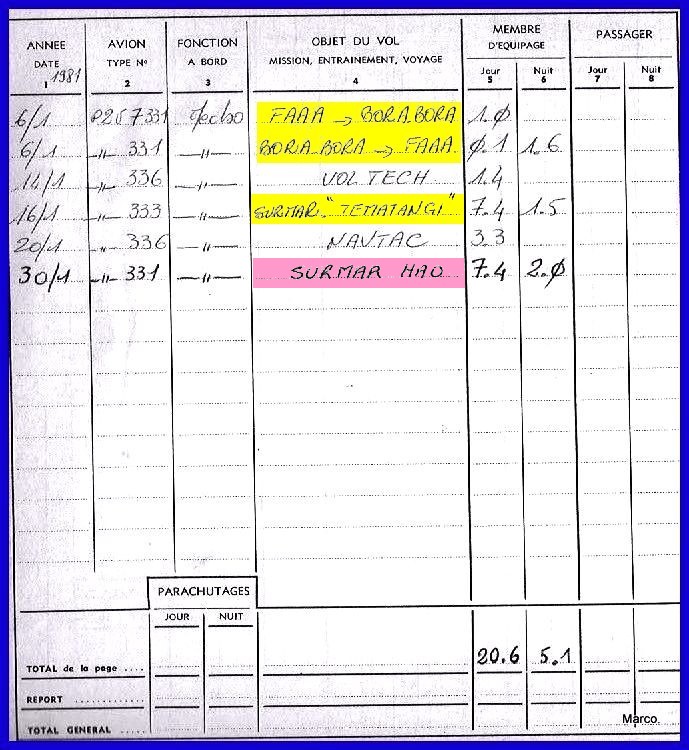 ANNEE AVION FONCTION OBJET DU VOL MEMBRE PASSAGER
DATE TYPE Nº A BORD MISSION, ENTRAINEMENT, VOYAGE D'EQUIPAGE
1981 Jour Nuit Jour Nuit
1 2 3 4 5 6 7 8
6/1 P2V7 331 Mecbo FAAA → BORA.BORA 1.Ø
6/1 -"- 331 -"- BORA.BORA → FAAA. Ø.1 1.6
14/1 -"- 336 -"- VOL TECH 1.4
16/1 -"- 333 -"- SURMAR. "TEMATANGI" 7.4 1.5
20/1 -"- 336 -"- NAVTAC 3.3
30/1 -"- 331 -"- SURMAR HAO 7.4 2.Ø
PARACHUTAGES
JOUR NUIT
TOTAL de la page .... 20.6 5.1
REPORT ............
TOTAL GENERAL ....
Marco.